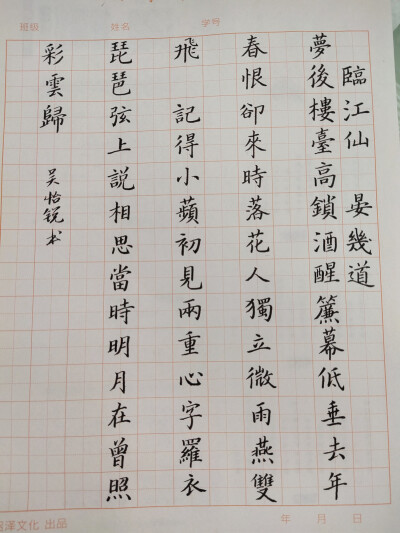 班级 姓名 学号
臨江仙 晏幾道
夢後樓臺高鎖酒醒簾幕低垂去年
春恨卻來時落花人獨立微雨燕雙
飛 記得小蘋初見兩重心字羅衣
琵琶弦上說相思當時明月在曾照
彩雲歸 吴怡锐书
泽文化 出品 年 月 日